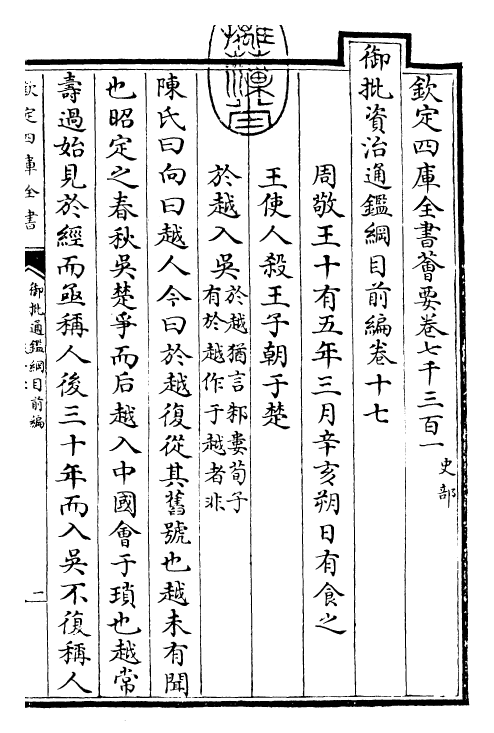 欽定四庫全書薈要卷七千三百一
史部
御批資治通鑑綱目前編卷十七
周敬王十有五年三月辛亥朔日有食之
王使人殺王子朝于楚
於越入吳於越猶言邾婁荀子
有於越作于越者非
陳氏曰向曰越人今曰於越復從其舊號也越未有聞
也昭定之春秋吳楚爭而后越入中國會于瑣也越常
壽過始見於經而亟稱人後三十年而入吳不復稱人
欽定四庫全書
御批通鑑綱目前編